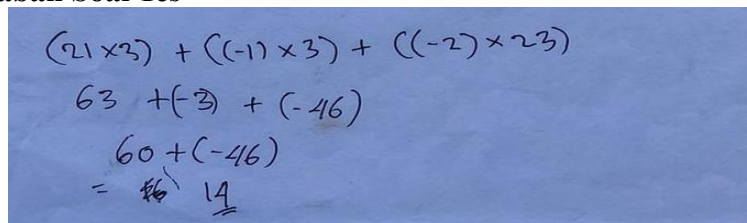 (21×3) + ((-1)×3) + ((-2)×23)
63 +(-3) + (-46)
60+(-46)
= 14